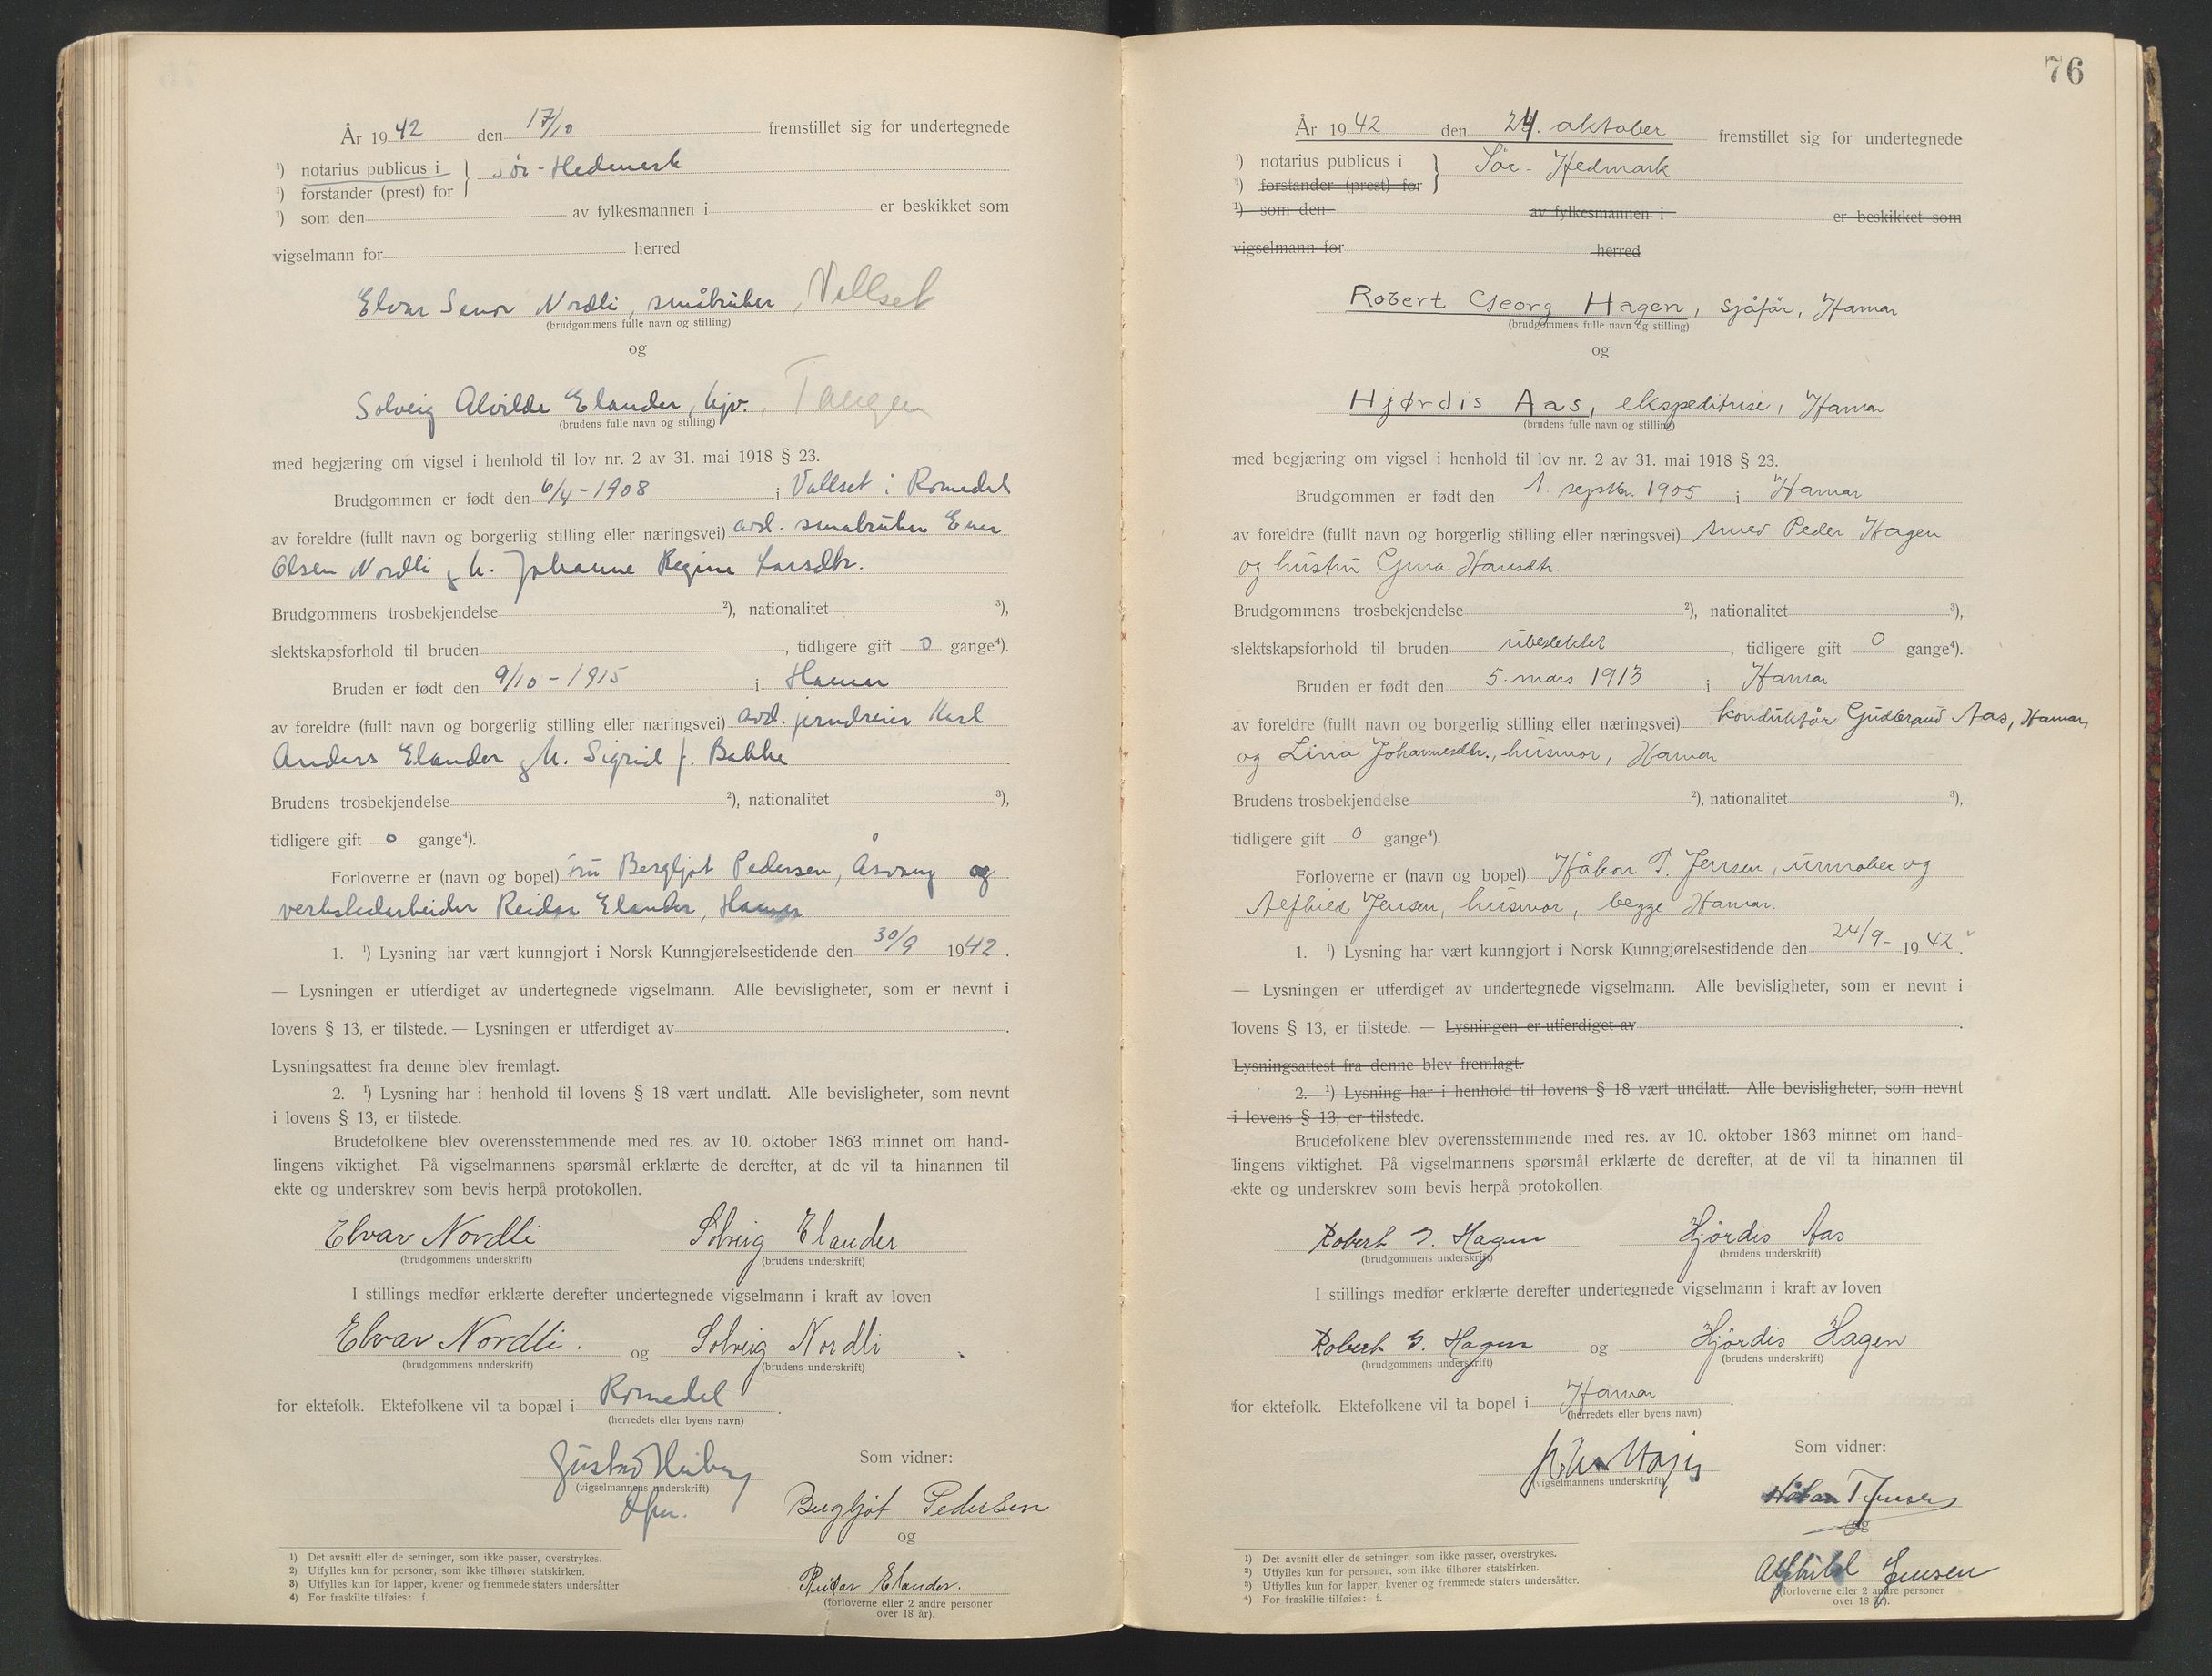 År 1942 den 17/10 fremstillet sig for undertegnede
¹) notarius publicus i } Sør-Hedmark
¹) forstander (prest) for
¹) som den av fylkesmannen i er beskikket som
vigselmann for herred
Elvar Senor Nordli, småbruker, Vallset
(brudgommens fulle navn og stilling)
og
Solveig Alvilde Elander, hjv., Tangen
(brudens fulle navn og stilling)
med begjæring om vigsel i henhold til lov nr. 2 av 31. mai 1918 § 23.
Brudgommen er født den 6/4-1908 i Vallset i Romedal
av foreldre (fullt navn og borgerlig stilling eller næringsvei) avd. småbruker
Olsen Nordli og h. Johanne Regine Larsdtr.
Brudgommens trosbekjendelse ²), nationalitet ³),
slektskapsforhold til bruden , tidligere gift 0 gange⁴).
Bruden er født den 9/10-1915 i Hamar
av foreldre (fullt navn og borgerlig stilling eller næringsvei) avd. jerndreier Karl
Anders Elander og h. Sigrid f. Bakke
Brudens trosbekjendelse ²), nationalitet ³),
tidligere gift 0 gange⁴).
Forloverne er (navn og bopel) fru Bergljot Pedersen, Åsvang og
verkstedarbeider Reidar Elander, Hamar
1. ¹) Lysning har vært kunngjort i Norsk Kunngjørelsestidende den 30/9 1942.
— Lysningen er utferdiget av undertegnede vigselmann. Alle bevisligheter, som er nevnt i
lovens § 13, er tilstede. — Lysningen er utferdiget av .
Lysningsattest fra denne blev fremlagt.
2. ¹) Lysning har i henhold til lovens § 18 vært undlatt. Alle bevisligheter, som nevnt
i lovens § 13, er tilstede.
Brudefolkene blev overensstemmende med res. av 10. oktober 1863 minnet om hand-
lingens viktighet. På vigselmannens spørsmål erklærte de derefter, at de vil ta hinannen til
ekte og underskrev som bevis herpå protokollen.
Elvar Nordli Solveig Elander
(brudgommens underskrift) (brudens underskrift)
I stillings medfør erklærte derefter undertegnede vigselmann i kraft av loven
Elvar Nordli. og Solveig Nordli
(brudgommens underskrift) (brudens underskrift)
for ektefolk. Ektefolkene vil ta bopæl i Romedal.
(herredets eller byens navn)
Gustav Heiberg Som vidner:
(vigselmannens underskrift)
Bergljot Pedersen
og
Reidar Elander.
(forloverne eller 2 andre personer
over 18 år).
¹) Det avsnitt eller de setninger, som ikke passer, overstrykes.
²) Utfylles kun for personer, som ikke tilhører statskirken.
³) Utfylles kun for lapper, kvener og fremmede staters undersåtter
⁴) For fraskilte tilføies: f.
76
År 1942 den 24. oktober fremstillet sig for undertegnede
¹) notarius publicus i } Sør-Hedmark
¹) forstander (prest) for
¹) som den av fylkesmannen i er beskikket som
vigselmann for herred
Robert Georg Hagen, sjåfør, Hamar
(brudgommens fulle navn og stilling)
og
Hjørdis Aas, ekspeditrise, Hamar
(brudens fulle navn og stilling)
med begjæring om vigsel i henhold til lov nr. 2 av 31. mai 1918 § 23.
Brudgommen er født den 1. septbr. 1905 i Hamar
av foreldre (fullt navn og borgerlig stilling eller næringsvei) smed Peder Hagen
og hustru Gina Hansdtr.
Brudgommens trosbekjendelse ²), nationalitet ³),
slektskapsforhold til bruden ubeslektet, tidligere gift 0 gange⁴).
Bruden er født den 5. mars 1913 i Hamar
av foreldre (fullt navn og borgerlig stilling eller næringsvei) konduktør Gudbrand Aas, Hamar,
og Lina Johannesdtr., husmor, Hamar
Brudens trosbekjendelse ²), nationalitet ³),
tidligere gift 0 gange⁴).
Forloverne er (navn og bopel) Håkon T. Jensen, urmaker og
Alfhild Jensen, husmor, begge Hamar.
1. ¹) Lysning har vært kunngjort i Norsk Kunngjørelsestidende den 24/9- 1942.
— Lysningen er utferdiget av undertegnede vigselmann. Alle bevisligheter, som er nevnt i
lovens § 13, er tilstede. — Lysningen er utferdiget av .
Lysningsattest fra denne blev fremlagt.
2. ¹) Lysning har i henhold til lovens § 18 vært undlatt. Alle bevisligheter, som nevnt
i lovens § 13, er tilstede.
Brudefolkene blev overensstemmende med res. av 10. oktober 1863 minnet om hand-
lingens viktighet. På vigselmannens spørsmål erklærte de derefter, at de vil ta hinannen til
ekte og underskrev som bevis herpå protokollen.
Robert G. Hagen Hjördis Aas
(brudgommens underskrift) (brudens underskrift)
I stillings medfør erklærte derefter undertegnede vigselmann i kraft av loven
Robert G. Hagen og Hjördis Hagen
(brudgommens underskrift) (brudens underskrift)
for ektefolk. Ektefolkene vil ta bopel i Hamar.
(herredets eller byens navn)
Som vidner:
(vigselmannens underskrift)
Håkon T. Jensen
og
Alfhild Jensen
(forloverne eller 2 andre personer
over 18 år).
¹) Det avsnitt eller de setninger, som ikke passer, overstrykes.
²) Utfylles kun for personer, som ikke tilhører statskirken.
³) Utfylles kun for lapper, kvener og fremmede staters undersåtter.
⁴) For fraskilte tilføies: f.